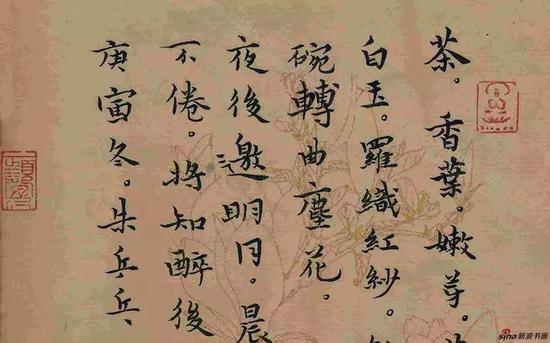 茶。香葉。嫩芽。
白玉。羅織紅紗。
碗轉曲塵花。
夜後邀明月。晨
不倦。將知醉後
庚寅冬。朱
sina新浪书画